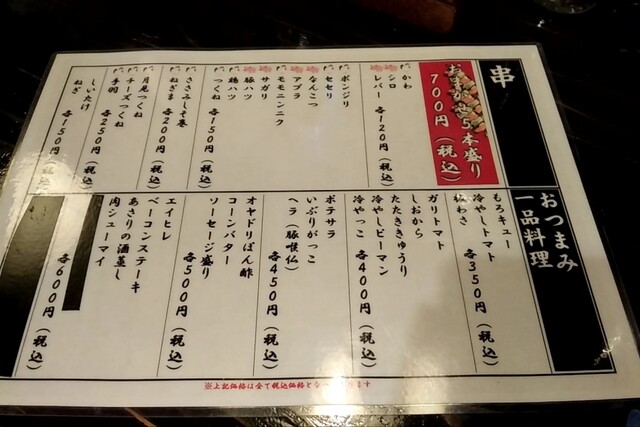 串
おまかせ5本盛り
700円(税込)
かわ
シロ
レバー
各120円(税込)
ボンジリ
セセリ
なんこつ
アブラ
モモニンニク
サガリ
豚ハツ
鶏ハツ
つくね
各150円(税込)
ささみしそ巻
ねぎま
各200円(税込)
月見つくね
チーズつくね
手羽
各250円(税込)
しいたけ
ねぎ
各150円(税込)
おつまみ
一品料理
もろキュー
冷やしトマト
板わさ
各350円(税込)
ガリトマト
しおから
たたききゅうり
冷やしピーマン
冷やっこ
各400円(税込)
ポテサラ
いぶりがっこ
ヘラ(豚喉仏)
各450円(税込)
オヤドリぽん酢
コーンバター
ソーセージ盛り
各500円(税込)
エイヒレ
ベーコンステーキ
あさりの酒蒸し
肉シューマイ
各600円(税込)
※上記価格は全て税込価格となります